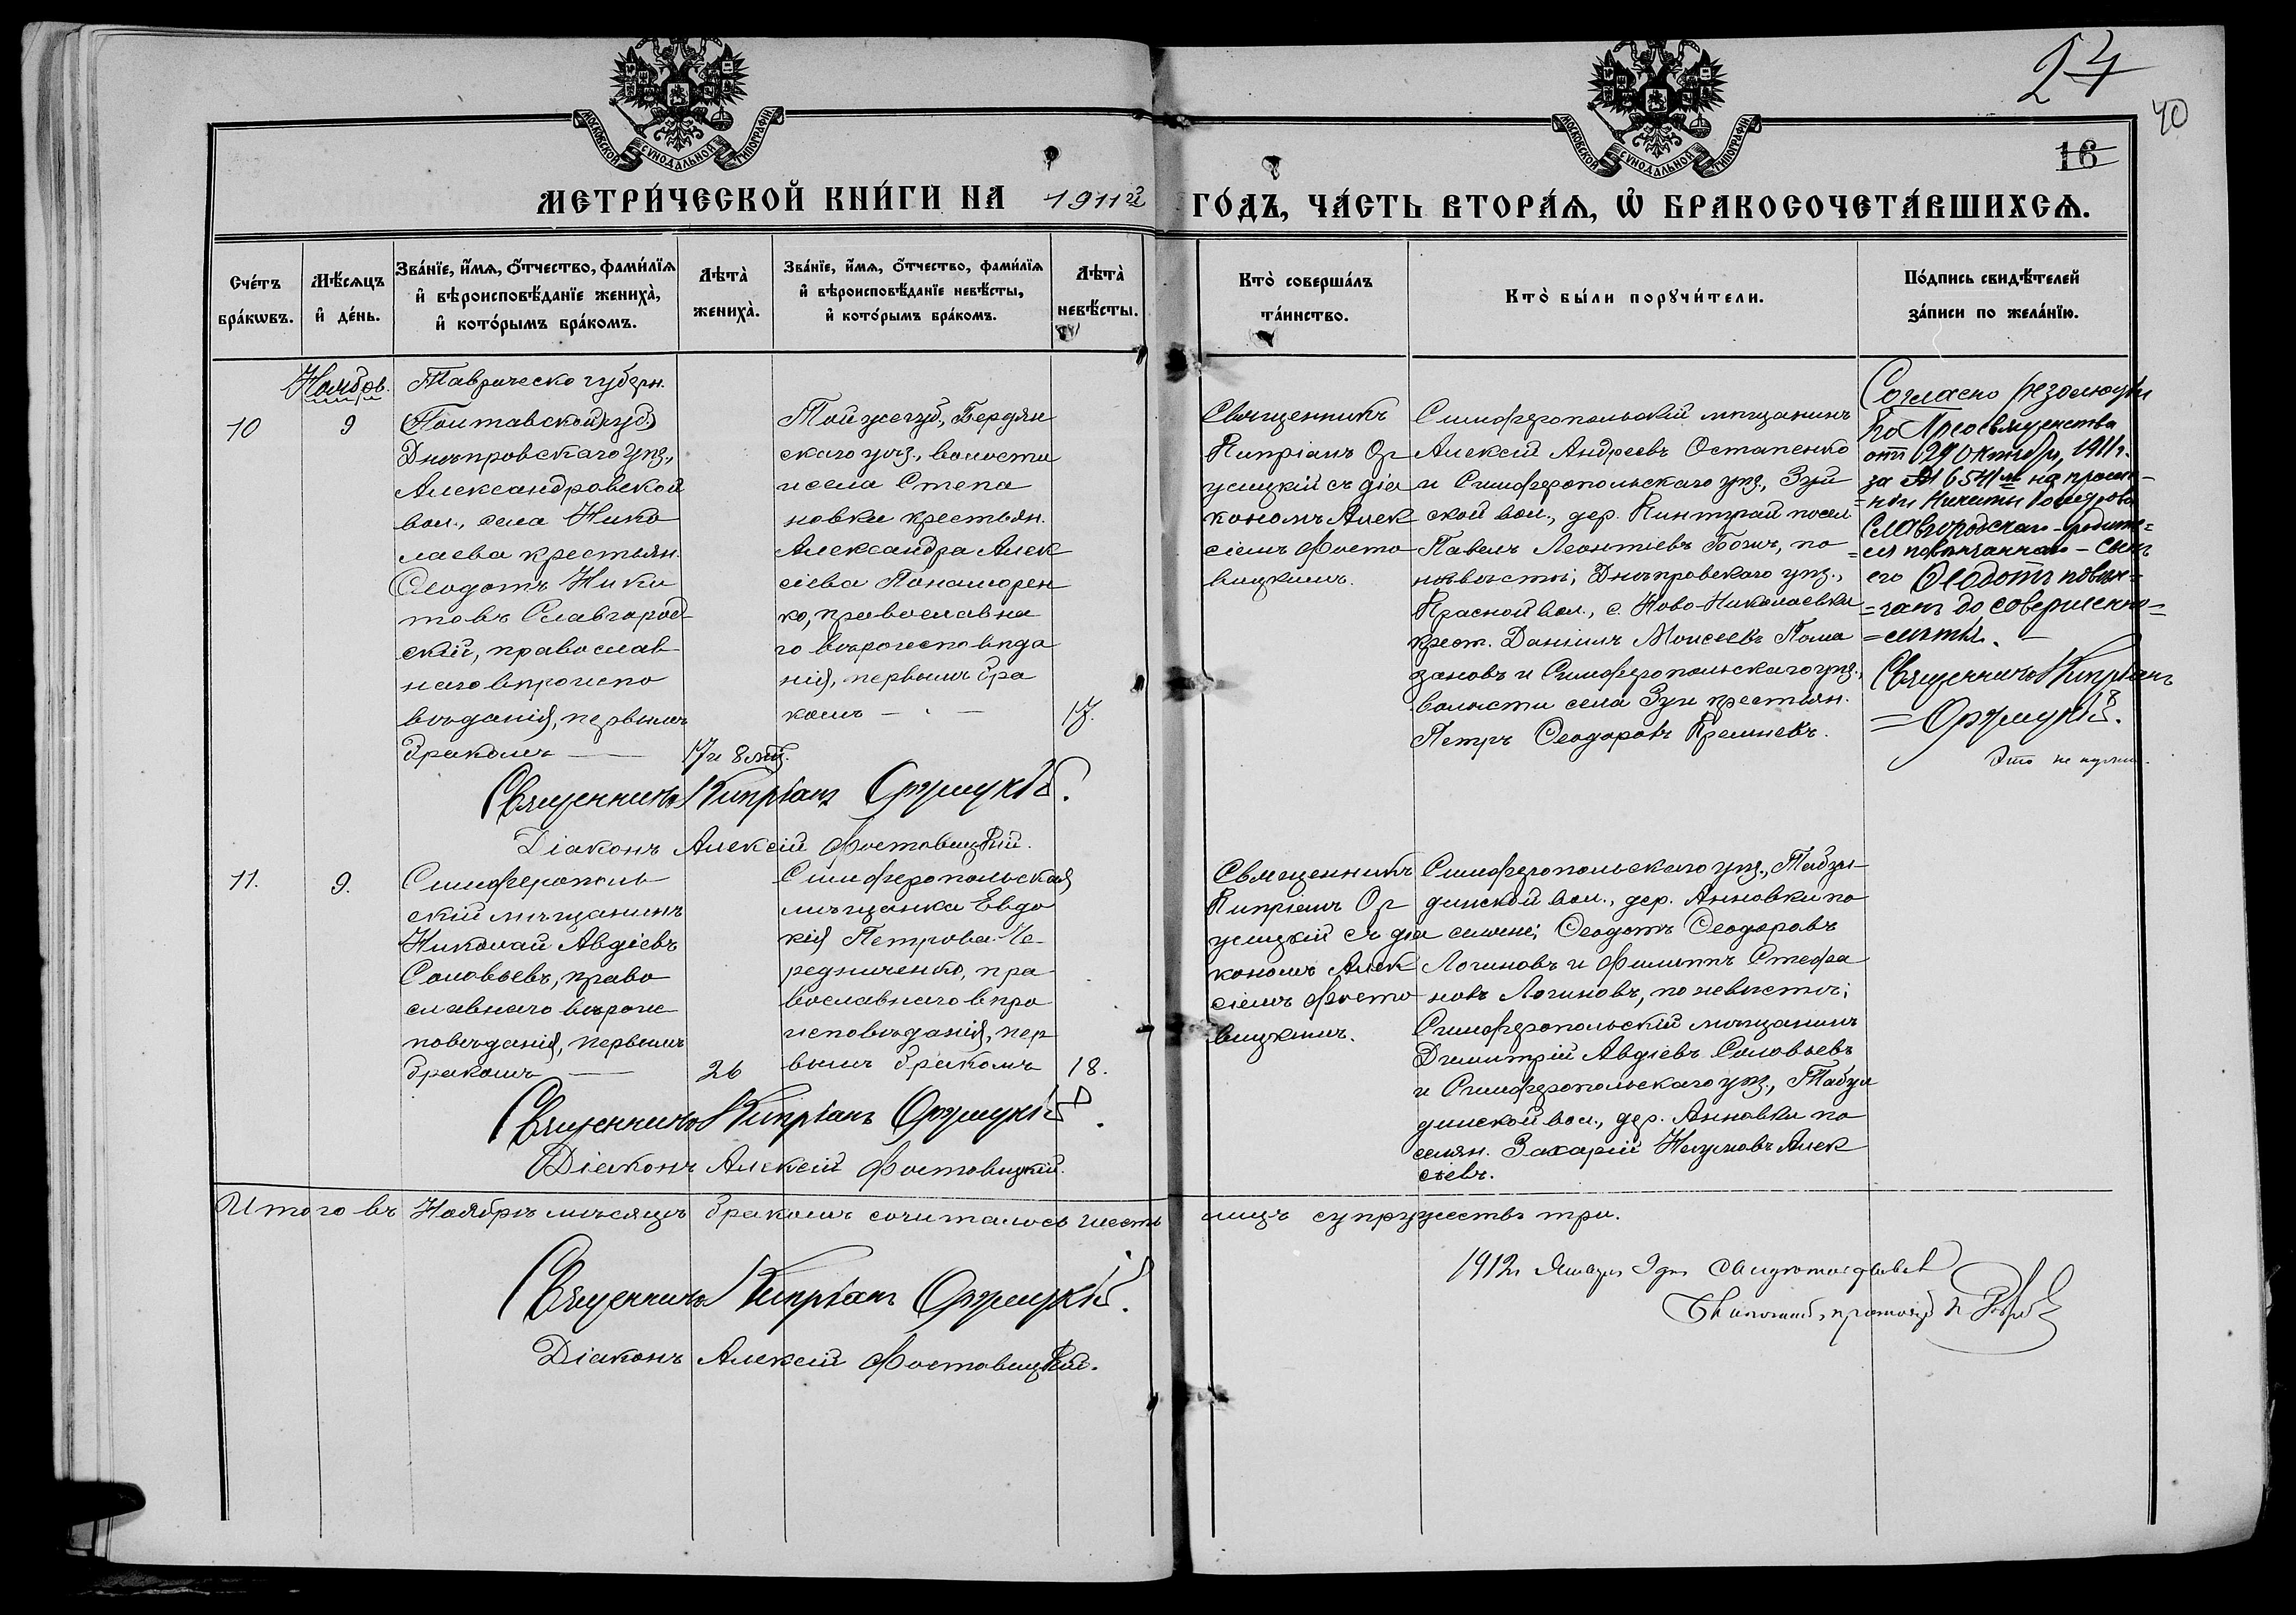 24
40
16
МОСКОВСКОЙ СѴНОДАЛЬНОЙ ТИПОГРАФІИ
МОСКОВСКОЙ СѴНОДАЛЬНОЙ ТИПОГРАФІИ
МЕТРИ́ЧЕСКОЙ КНИ́ГИ НА 1911й ГО́ДЪ, ЧА́СТЬ ВТОРА́Ѧ, Ѡ҆ БРАКОСОЧЕТА́ВШИХСѦ.
Сче́тъ бра́кѡвъ.
Мѣ́сѧцъ и҆ де́нь.
Зва́нїе, и҆́мѧ, ѻ҆́тчество, фами́лїѧ и҆ вѣроисповѣ́данїе жениха̀, и҆ кото́рымъ бра́комъ.
Лѣта̀ жениха̀.
Зва́нїе, и҆́мѧ, ѻ҆́тчество, фами́лїѧ и҆ вѣроисповѣ́данїе невѣ́сты, и҆ кото́рымъ бра́комъ.
Лѣта̀ невѣ́сты.
Кто̀ соверша́лъ та́инство.
Кто̀ бы́ли порꙋчи́тели.
По́дпись свидѣ́телей за́писи по жела́нїю.
10
9
Таврическо губерн.
(Полтавской губ.)
Днѣпровскаго уѣз.,
Александровской
вол., села Нико
лаева крестьян.
Ѳеодотъ Ники
товъ Славгород
скій, православ
наго вѣроиспо
вѣданія, первымъ
бракомъ —
17 и 8 мѣс.
Той же губ., Бердян
скаго уѣз., волости
и села Степа
новки крестьян.
Александра Алек
сіева Понаморен
ко, православна
го вѣроисповѣда
нія, первымъ бра
комъ — —
17.
Священникъ
Кипріанъ Ор
жицкій съ діа
кономъ Алек
сіемъ Фосто
вицкимъ.
Симферопольскій мѣщанинъ
Алексій Андреевъ Остапенко
и Симферопольскаго уѣз., Зуй
ской вол., дер. посел
Павелъ Леонтіевъ по
невѣстѣ; Днѣпровскаго уѣз.,
Красной вол., с. Ново-Николаевки
крест. Даніилъ Моисеевъ Пома
зановъ и Симферопольскаго уѣз.,
волости села Зуи крестьян.
Петръ Ѳеодоровъ Кремневъ.
Согласно резолюціи
Его Преосвященства
отъ 29 Октября, 1911 г.
за № 6541м на проше-
=ніи Никиты
Славгородскаго — родите=
=ля повѣнчаннаго — сынъ
его Ѳеодотъ повѣн=
=чанъ до совершенно=
=лѣтія. —
Священникъ Кипріанъ
= Оржицкій.
Это не нужно.
Священникъ Кипріанъ Оржицкій.
Діаконъ Алексій Фостовицкій.
11.
9.
Симферополь
скій мѣщанинъ
Николай Авдіевъ
Соловьевъ, право
славнаго вѣроис
повѣданія, первымъ
бракомъ —
26
Симферопольская
мѣщанка Евдо
кія Петрова Че-
редниченко, пра
вославнаго вѣро
исповѣданія, пер
вымъ бракомъ
18.
Священникъ
Кипріанъ Ор
жицкій съ діа
кономъ Алек
сіемъ Фосто
вицкимъ.
Симферопольскаго уѣз., Табул-
динской вол., дер. Анновки по
селяне; Ѳеодотъ Ѳеодоровъ
Логиновъ и Филиппъ Стефа
новъ Логиновъ, по невѣстѣ;
Симферопольскій мѣщанинъ
Димитрій Авдіевъ Соловьевъ
и Симферопольскаго уѣз., Табул
динской вол., дер. Анновки по
селян. Захарій Наумовъ Алек
сѣевъ.
Священникъ Кипріанъ Оржицкій.
Діаконъ Алексій Фостовицкій.
Итого въ Ноябрѣ мѣсяцѣ бракомъ сочиталось шесть лицъ супружествъ три.
Священникъ Кипріанъ Оржицкій.
Діаконъ Алексій Фостовицкій.
1912 Января 9 дня свидѣтельствовалъ
Благочинный, протоіер.